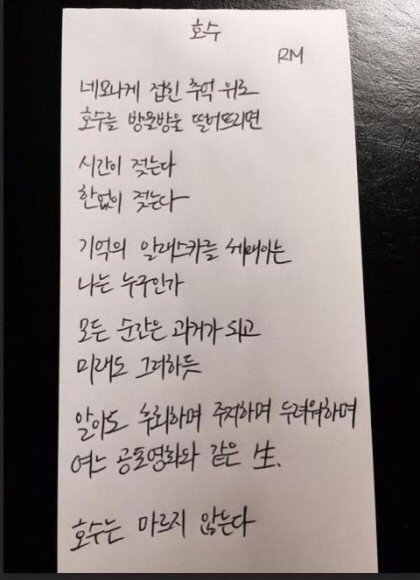 호수
RM
네모나게 접힌 추억 위로
호수를 방울방울 떨어뜨리면
시간이 젖는다
한없이 젖는다
기억의 알래스카를 헤매이는
나는 누구인가
모든 순간은 과거가 되고
미래도 그러하듯
알아도 추리하며 주저하며 두려워하며
여느 공포영화와 같은 生.
호수는 마르지 않는다